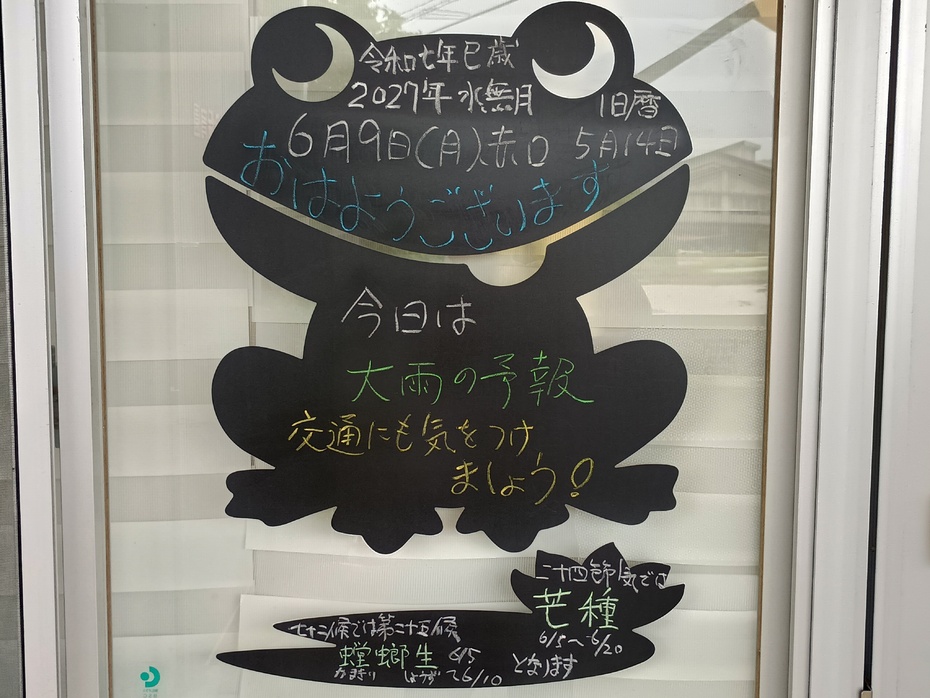 令和七年巳歳
2027年 水無月 旧暦
6月9日(月)赤口 5月14日
おはようございます
今日は
大雨の予報
交通にも気をつけ
ましょう!
二十四節気では
芒種
6/5〜6/20
となります
七十二候では第二十五候
螳螂生 6/5
かまきり しょうず 〜6/10